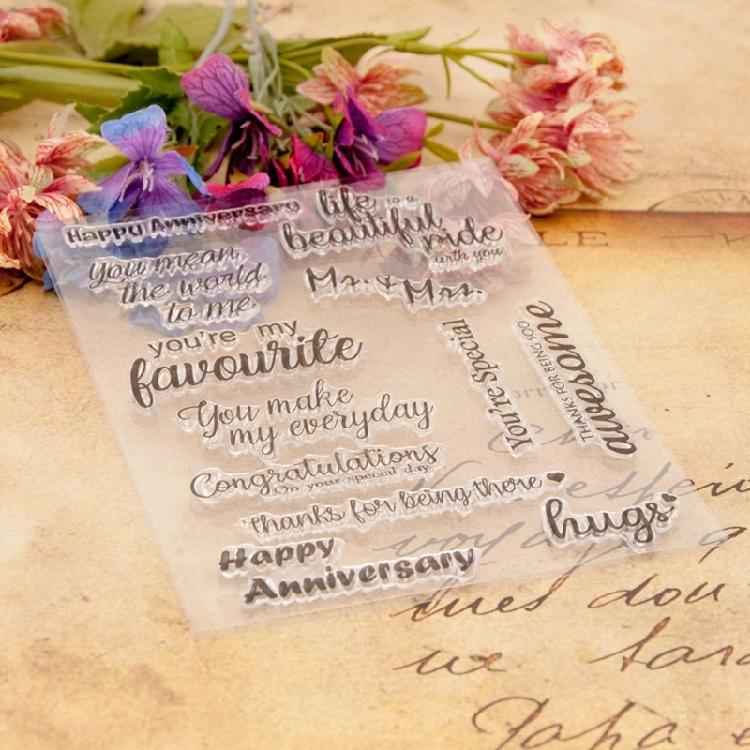 Happy Anniversary
life is a
beautiful ride
with you
you mean
the world
to me
Mr. & Mrs.
you're my
favourite
You're special
THANKS FOR BEING SOO
awesome
You make
my everyday
Congratulations
On your special day
thanks for being there
hugs
Happy
Anniversary